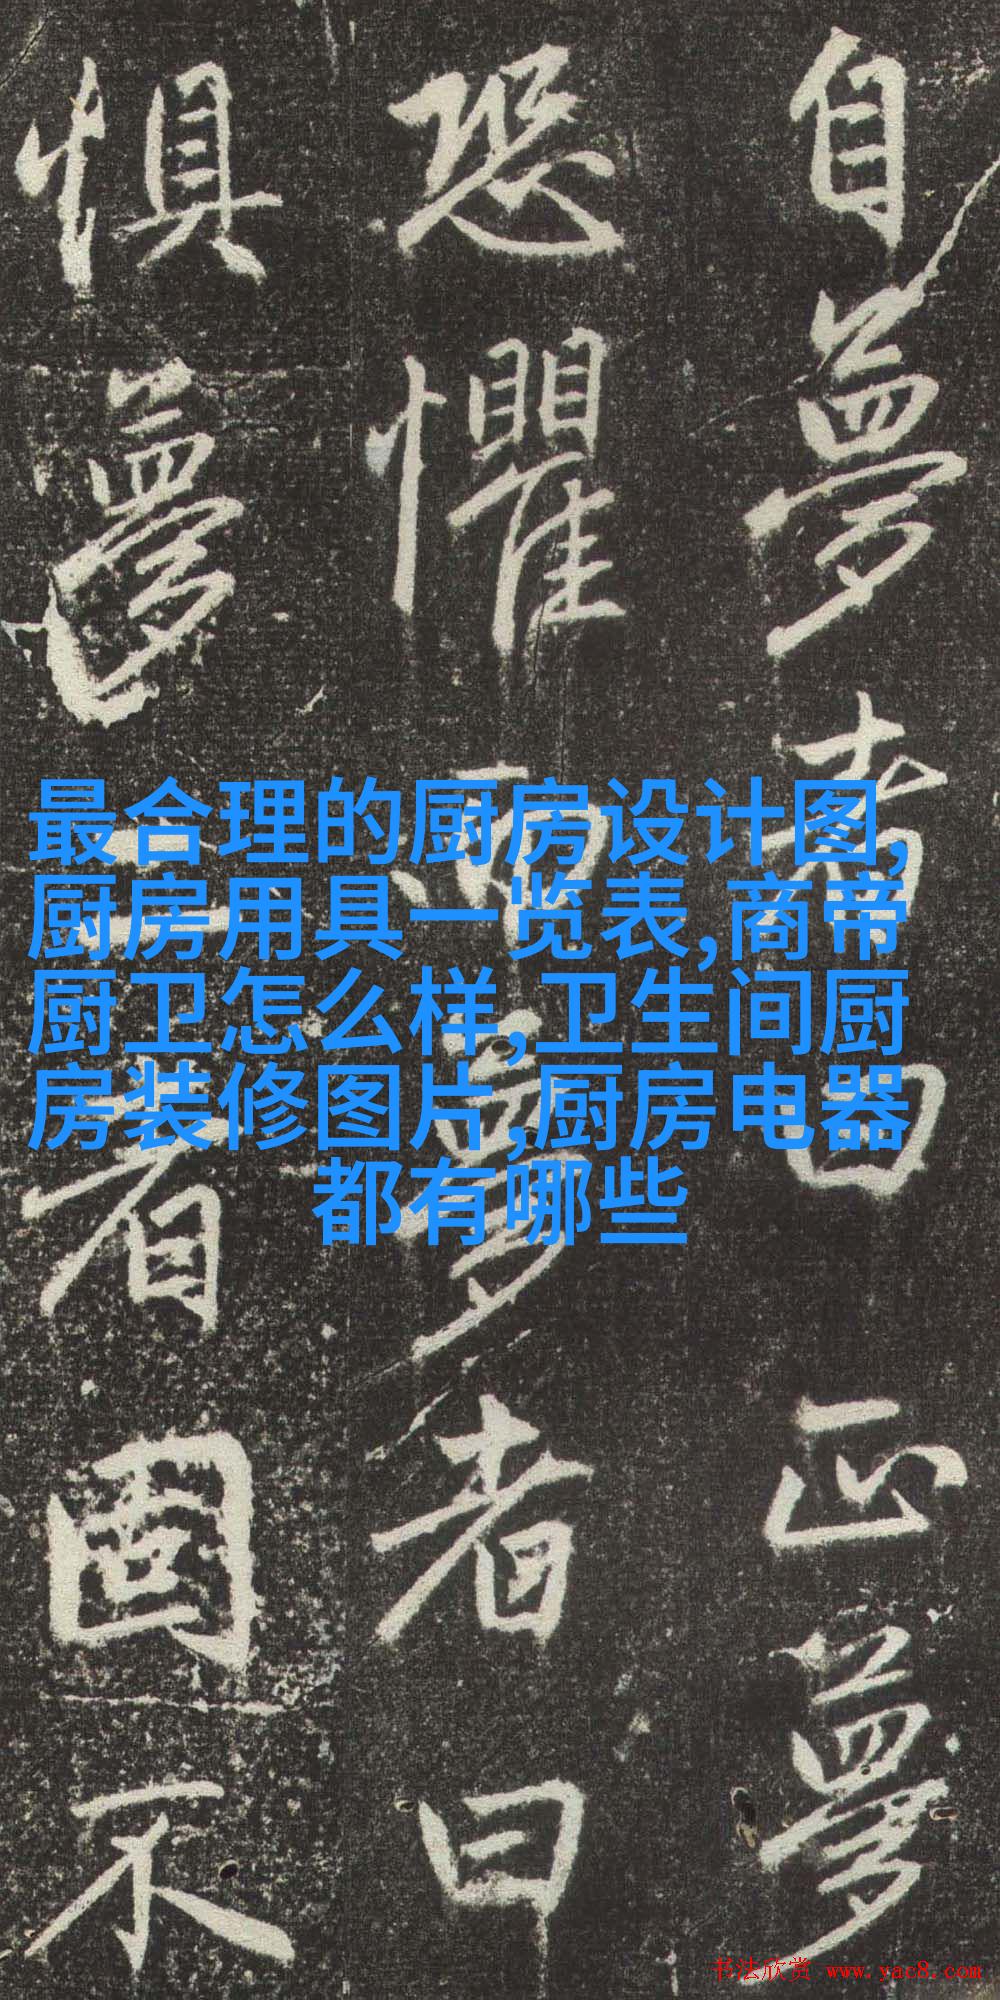 自夢者曰正夢
恐懼而夢者曰
惧夢二者固不
最合理的厨房设计图,
厨房用具一览表,商帝
厨卫怎么样,卫生间厨
房装修图片,厨房电器
都有哪些
书法欣赏 www.yac8.com